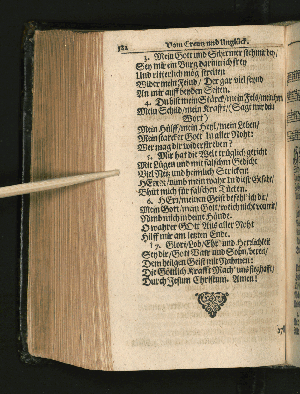 182 Vom Creutz und Unglück.
3. Mein Gott und Schirmer steh mir bey/
Sey mir ein Burg darinn ich frey
Und ritterlich mög streiten
Wider mein Feind/ Der gar viel seynd
An mir auff beyden Seiten.
4. Du bist mein Stärck/ mein Felß/ mein
Mein Schild/ mein Krafft/ (Sagt mir dein
Wort)
Mein Hülff/ mein Heyl/ mein Leben/
Mein starcker Gott in aller Noht:
Wer mag dir widerstreben?
5. Mir hat die Welt trüglich gericht
Mit Lügen und mit falschem Gedicht
Viel Netz und heimlich Stricken:
HErr/ nimb mein wahr in dieser Gefahr/
Bhüt mich für falschen Tücken.
6. HErr/ meinen Geist befehl ich dir/
Mein Gott/ mein Gott/ weich nicht von mir/
Nimb mich in deine Hände.
O wahrer GOtt Aus aller Noht
Hilff mir am letzten Ende.
7. Glori/ Lob/ Ehr und Herrlichkeit
Sey dir/ Gott Vater und Sohn/ bereit/
Dem heilgen Geist mit Nahmen:
Die Göttlich Krafft Mach uns sieghafft/
Durch Jesum Christum. Amen!